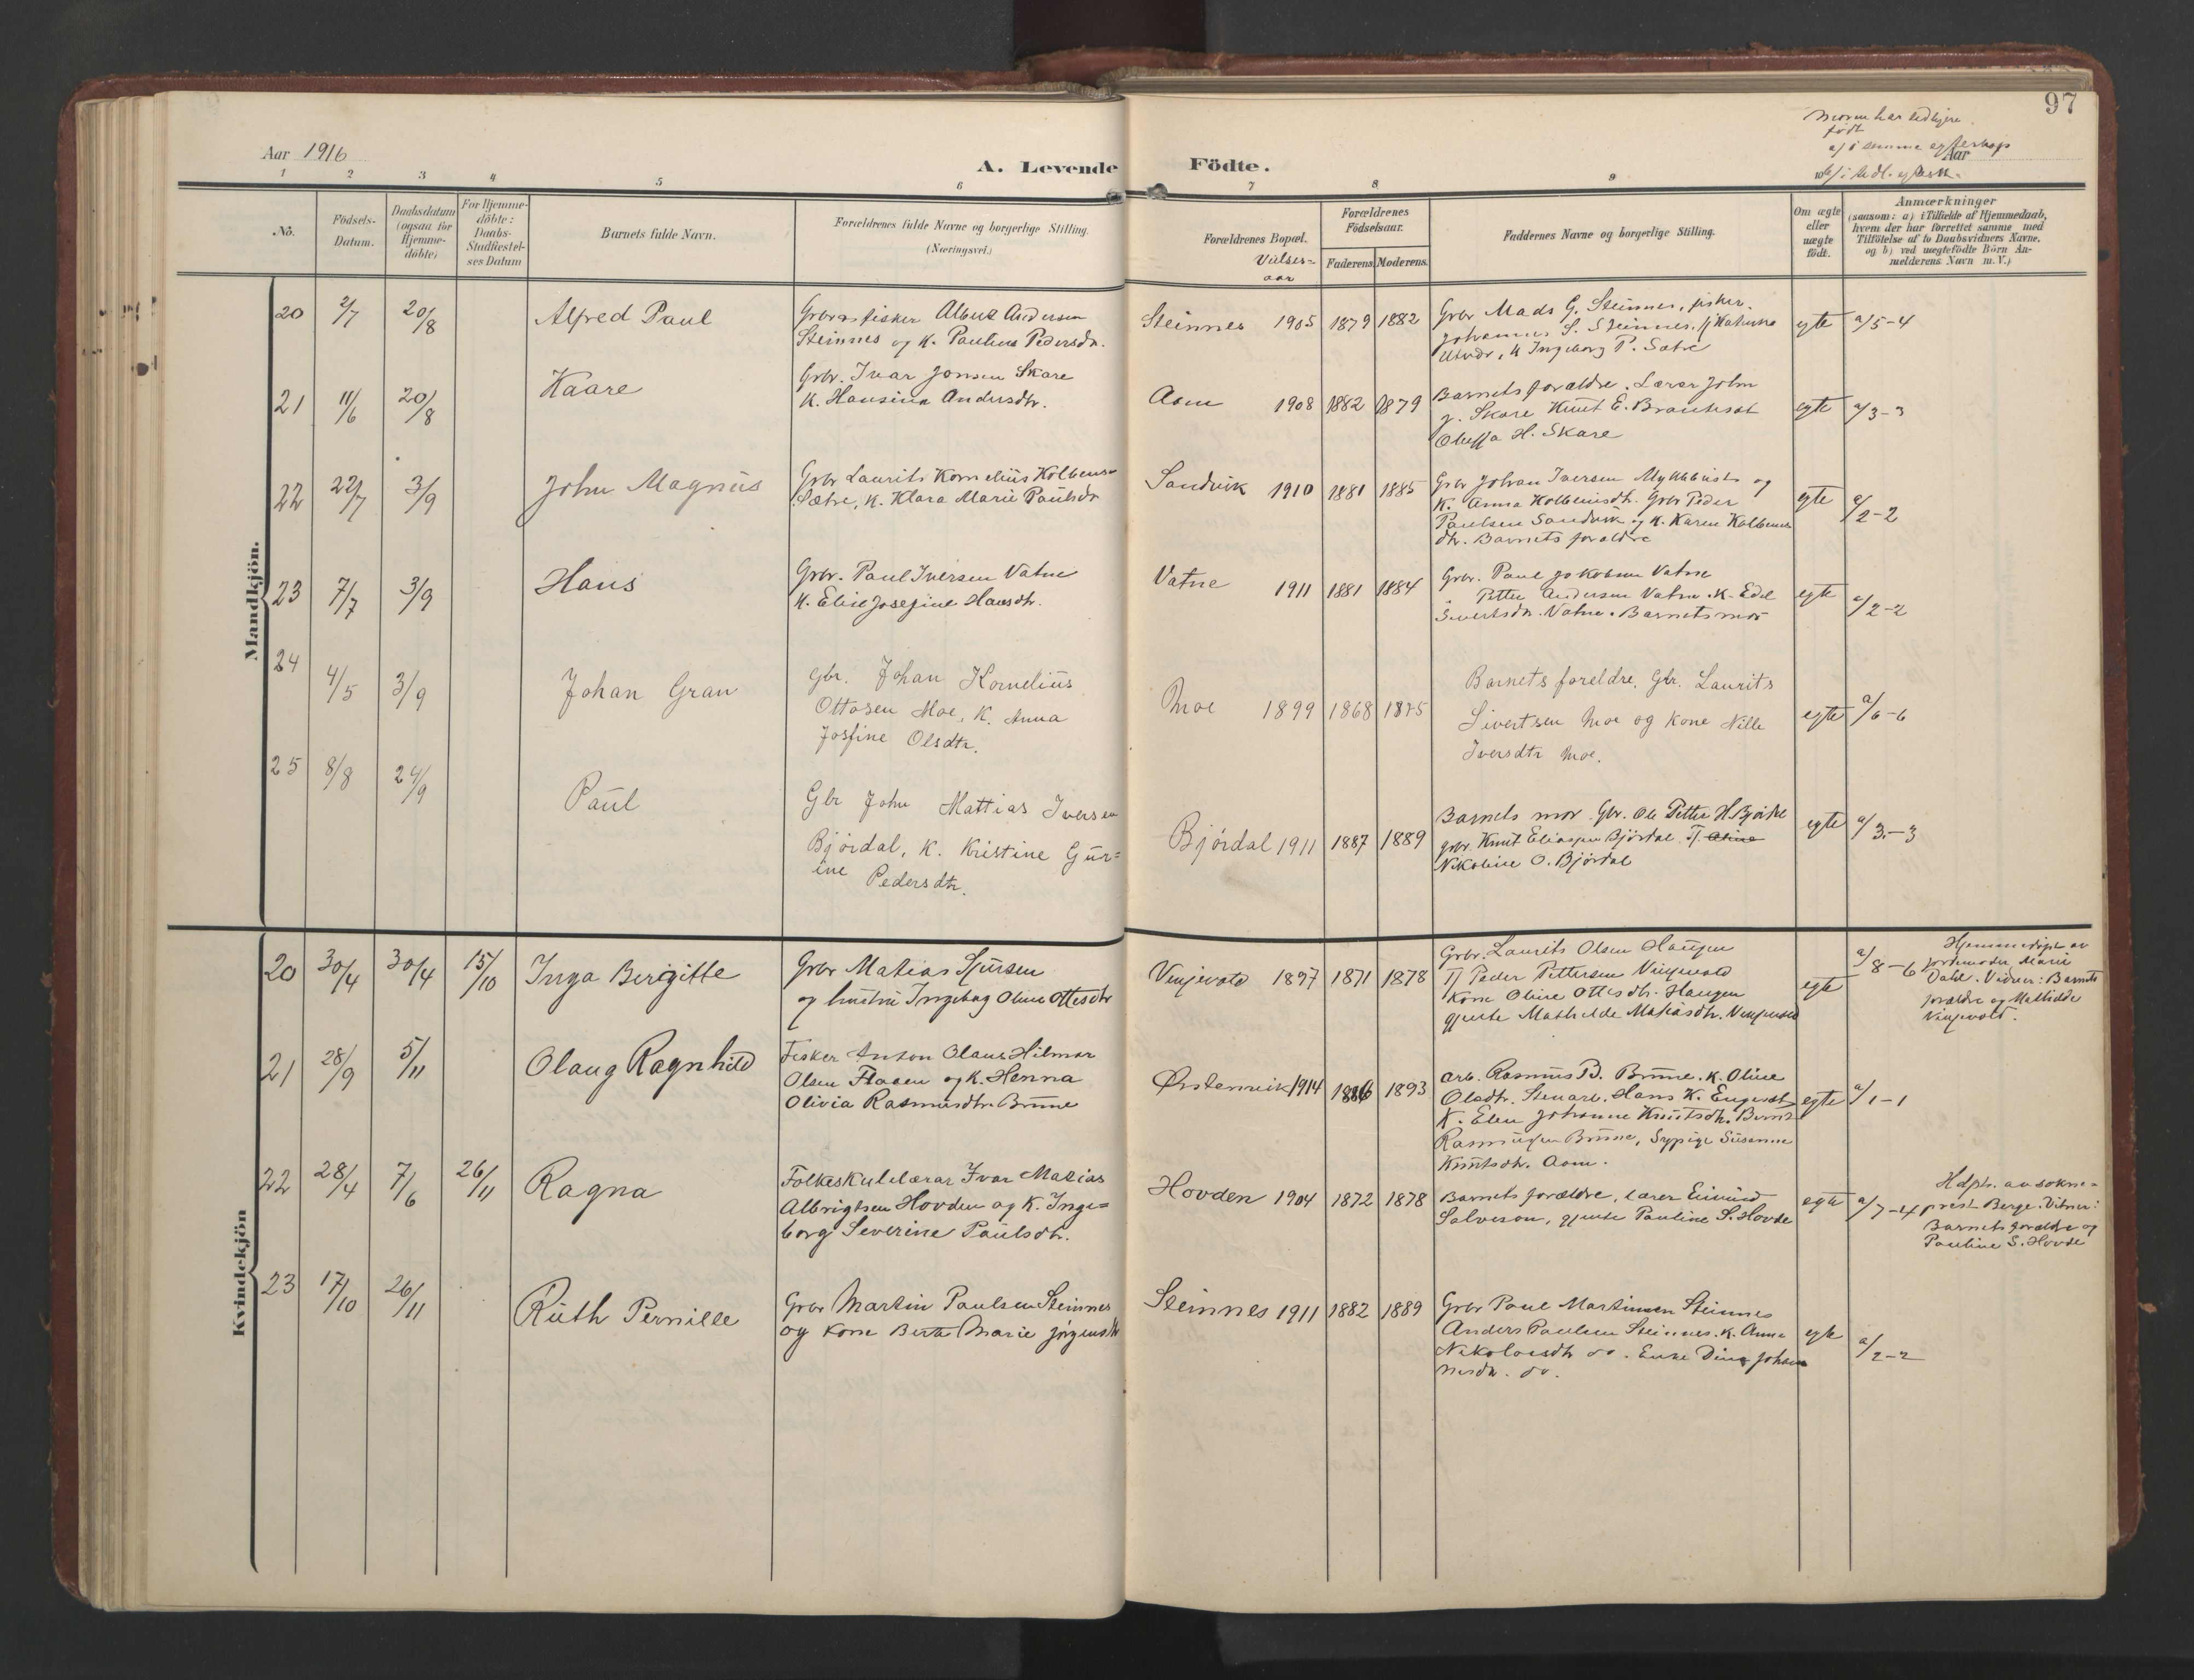 97
Aar 1916
A. Levende Födte.
Moren har tidligere
født
a/ i samme egteskap
Aar
1 2 3 4 5 6 7 8 9
No.
Födsels-
Datum.
Daabsdatum
(ogsaa for
Hjemme-
döbte)
For Hjemme-
döbte:
Daabs-
Stadfæstel-
ses Datum
Barnets fulde Navn.
Forældrenes fulde Navne og borgerlige Stilling.
(Næringsvei.)
Forældrenes Bopæl.
Vielses-
aar
Forældrenes
Födselsaar.
Faderens. Moderens.
Faddernes Navne og borgerlige Stilling.
Om ægte
eller
uægte
født.
Anmærkninger
(saasom: a) i Tilfælde af Hjemmedaab,
hvem der har forrettet samme med
Tilföielse af to Daabsvidners Navne.
og b) ved uægtefödte Börn An-
melderens Navn m. V.)
Mandkjön.
20 2/7 20/8 Alfred Paul
Grbr og fisker Albert Andersen
Steinnes og K. Pauline Pedersdr.
Steinnes 1905 1879 1882
Grbr Mads G. Steinnes, fisker
Johannes S. Steinnes, Katrine
K Ingeborg P. Sætre
egte a/5-4
21 11/6 20/8 Kaare
Grbr. Ivar Jonsen Skare
K. Hansine Andersdtr.
Aam 1908 1882 1879
Barnets forældre. Lærer John
J. Skare Knut E. Brautaset
H. Skare
egte a/3-3
22 22/7 3/9 John Magnus
Grbr Laurits Kornelius Kolbens
Sætre, K. Klara Marie Paulsdr
Sandvik 1910 1881 1885
Grbr Johan Iversen Myklebust og
K. Anna Kolbeinsdtr. Grbr Peder
Paulsen Sandvik og K. Karen Kolbens
dtr. Barnets forældre
egte a/2-2
23 7/7 3/9 Hans
Grbr. Paul Iversen Vatne
K. Elise Josefine Hansdtr.
Vatne 1911 1881 1884
Grbr. Paul Jakobsen Vatne
Petter Andersen Vatne. K. Edel
Sivertsdr. Vatne. Barnets mor
egte a/2-2
24 4/5 3/9 Johan Gran
Gbr. Johan Kornelius
Ottosen Moe, K. Anna
Josfine Olsdtr.
Moe 1899 1868 1875
Barnets foreldre, Gbr. Laurits
Sivertsen Moe og Kone Nille
Iversdtr Moe.
egte a/6-6
25 8/8 24/9 Paul
Gbr John Mattias Iversen
Bjørdal, K. Kristine Gur=
ine Pedersdtr.
Bjørdal 1911 1887 1889
Barnets mor Gbr. Ole Petter H. Bjørdal
grbr. Knut Eliassen Bjørdal Tj. Oline
Nikoline O. Bjørdal
egte a/3-3
Kvindekjön
20 30/4 30/4 15/10 Inga Bergitte
Grbr Matias Sjursen
og hustru Ingeborg Oline Ottesdtr
Vinjevold 1897 1871 1878
Grbr. Laurits Olsen Haugen
Tj Peder Pettersen Vinjevold
Kone Oline Ottesdtr. Haugen
gjente Mathilde Matiasdtr. Vinjevold
egte a/8-6
Hjemmedøpt av
jordmoder Marie
Dahl. Vidner: Barnets
forældre og Mathilde
Vinjevold.
21 28/9 5/11 Olaug Ragnhild
Fisker Anton Olaus Hilmar
Olsen Flaaen og K. Hanna
Olivia Rasmusdtr. Brune
Ørstenvik 1914 1886 1893
Arb. Rasmus P. Brune. K. Oline
Olsdtr. Stenarb. Hans K. Engeset
K. Elen Johanne Knutsdtr. Bernt
Rasmussen Brune, Sypige Susanne
Knutsdtr. Aam.
egte a/1-1
22 28/4 7/6 26/11 Ragna
Folkeskulelærar Ivar Matias
Albrigtsen Hovden og K. Inge=
borg Severine Paulsdtr.
Hovden 1904 1872 1878
Barnets forældre, lærer Eivind
Salveson, gjente Pauline S. Hovde
egte a/7-4
Hdpt. av sokne=
prest Berge. Vitner:
Barnets forældre og
Pauline S. Hovde
23 17/10 26/11 Ruth Pernille
Grbr Martin Paulsen Steinnes
og Kone Berte Marie Jørgensdtr
Steinnes 1911 1882 1889
Grbr Paul Martinsen Steinnes
Anders Paulsen Steinnes. K. Anna
Nikolaisdtr do. Enke Dina Johan
nesdr. do.
egte a/2-2